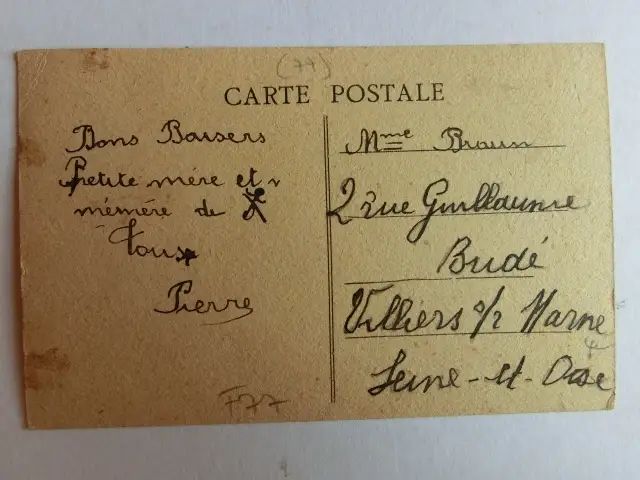 (77)
CARTE POSTALE
Bons Baisers
Petite mère et
mémére de
Tous
Pierre
F77
Mme Braun
2 rue Guillaume
Budé
Villiers s/ Marne
Seine-et-Oise